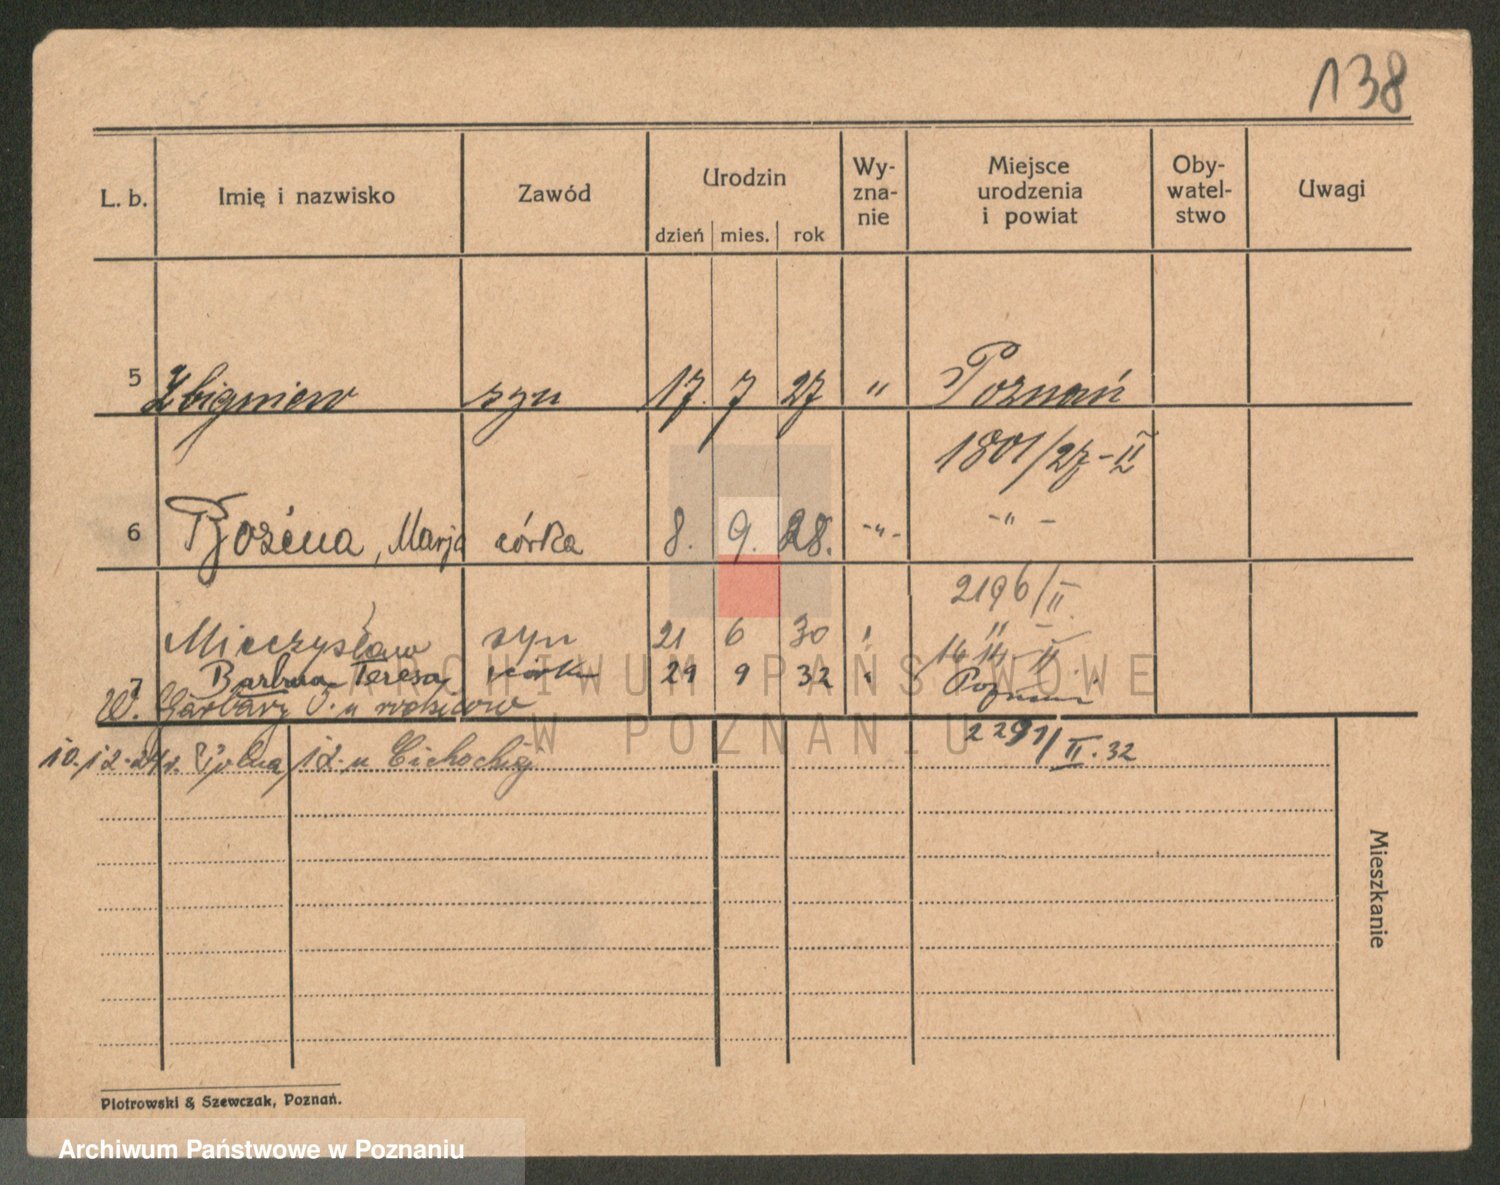 138
L. b. Imię i nazwisko Zawód Urodzin dzień mies. rok Wy-zna-nie Miejsce urodzenia i powiat Oby-watel-stwo Uwagi
5 Zbigniew syn 17. 7 27 " Poznań
1801/27-II
6 Bożena, Marja córka 8. 9. 28. -"- -"-
2196/II
Mieczysław syn 21 6 30 " "
14 II
7 Barbara Teresa córka 29 9 32 " Poznań
W. Garbary 5. u rodziców
2291/II.32
10.12.24r. 12. u Cichockiej
Mieszkanie
ARCHIWUM PAŃSTWOWE
W POZNANIU
Piotrowski & Szewczak, Poznań.
Archiwum Państwowe w Poznaniu